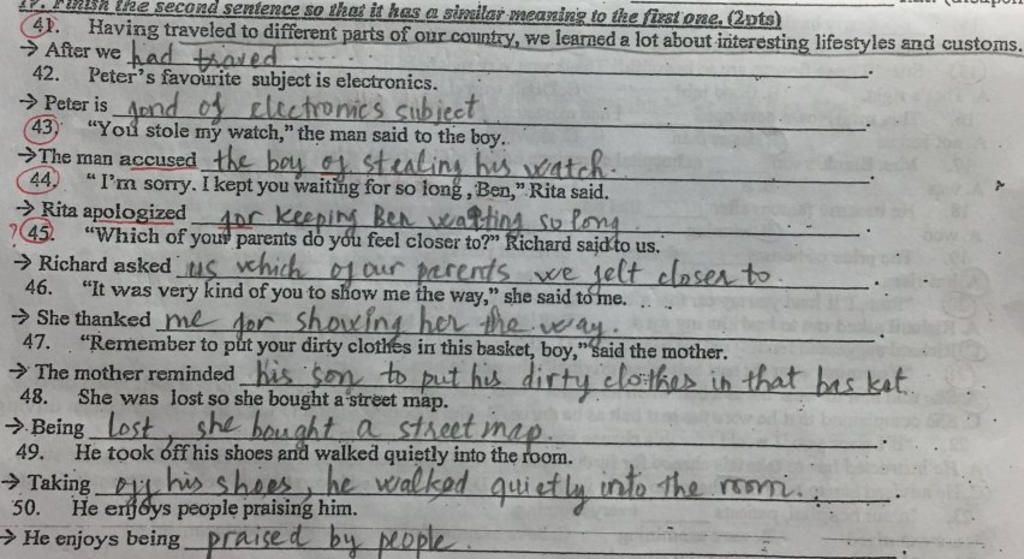 IV. Finish the second sentence so that it has a similar meaning to the first one. (2pts)
41. Having traveled to different parts of our country, we learned a lot about interesting lifestyles and customs.
→ After we had traved ......
42. Peter's favourite subject is electronics.
→ Peter is fond of electronics subject.
43. "You stole my watch," the man said to the boy.
→ The man accused the boy of stealing his watch.
44. "I'm sorry. I kept you waiting for so long, Ben," Rita said.
→ Rita apologized for keeping Ben waiting so long.
?45. "Which of your parents do you feel closer to?" Richard said to us.
→ Richard asked us which of our parents we felt closer to.
46. "It was very kind of you to show me the way," she said to me.
→ She thanked me for showing her the way.
47. "Remember to put your dirty clothes in this basket, boy," said the mother.
→ The mother reminded his son to put his dirty clothes in that basket.
48. She was lost so she bought a street map.
→ Being lost, she bought a street map.
49. He took off his shoes and walked quietly into the room.
→ Taking off his shoes, he walked quietly into the room.
50. He enjoys people praising him.
→ He enjoys being praised by people.